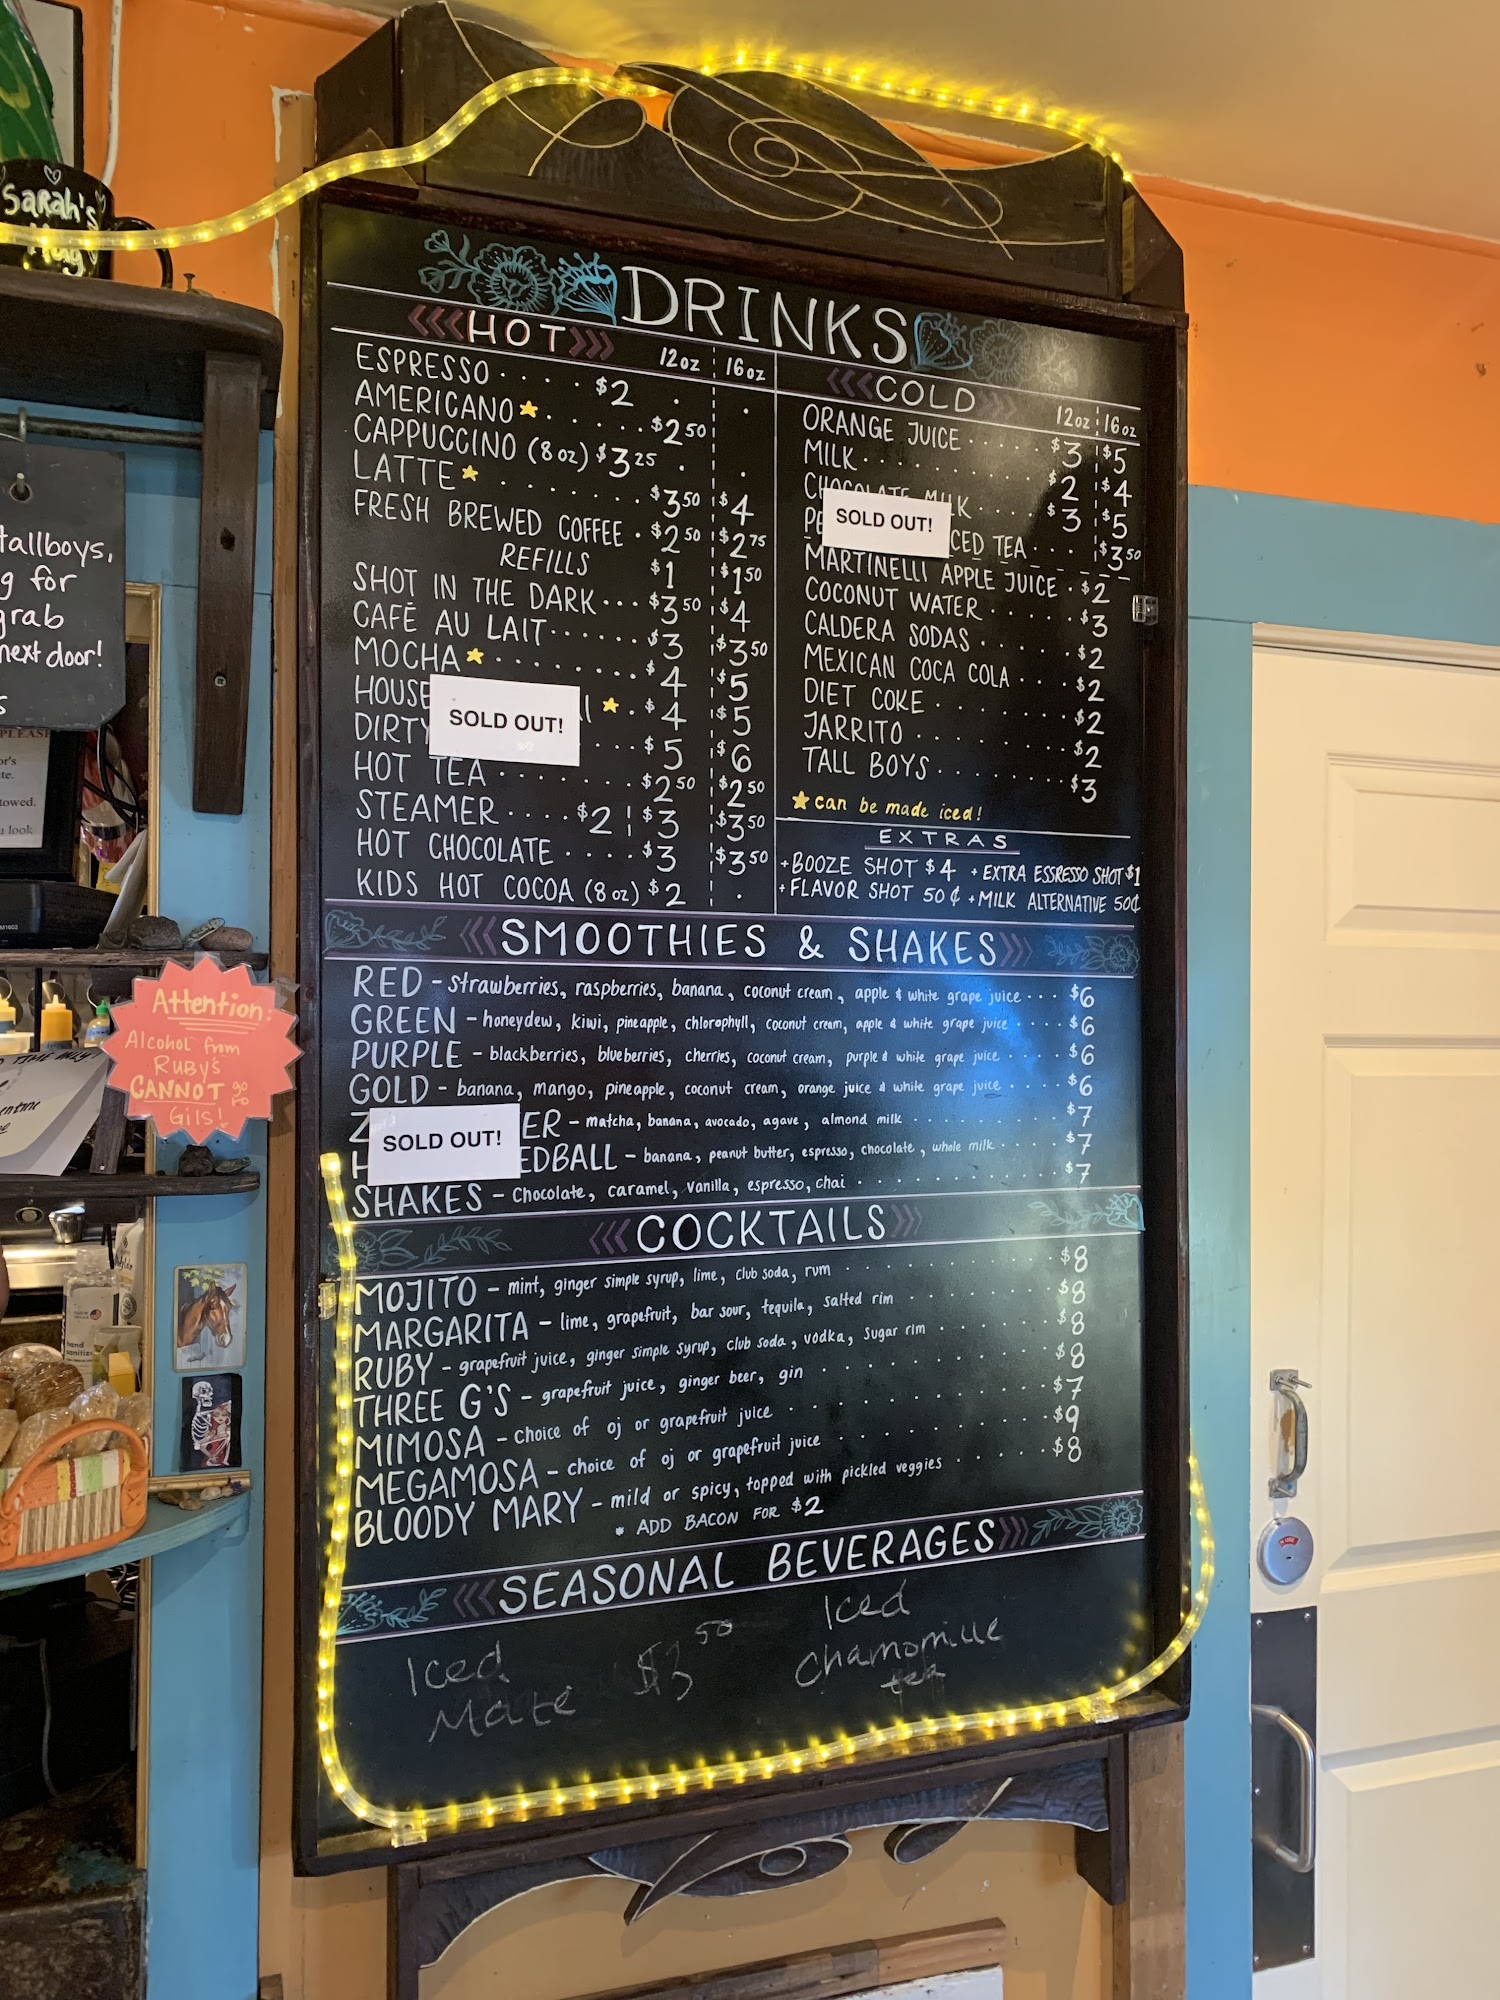 Sarah's
Mug
tallboys,
g for
grab
next door!
s
PLEASE
or's
te.
towed.
u look
Attention:
Alcohol from
RUBY'S
CANNOT go
to
Gils!
hand
DRINKS
HOT
12oz 16oz
ESPRESSO $2
AMERICANO $2 50
CAPPUCCINO (8oz) $3 25
LATTE $3 50 $4
FRESH BREWED COFFEE $2 50 $2 75
REFILLS $1 $1 50
SHOT IN THE DARK $3 50 $4
CAFÉ AU LAIT $3 $3 50
MOCHA $4 $5
HOUSE I $4 $5
SOLD OUT!
DIRTY $5 $6
HOT TEA $2 50 $2 50
STEAMER $2 $3 $3 50
HOT CHOCOLATE $3 $3 50
KIDS HOT COCOA (8oz) $2
COLD
12oz 16oz
ORANGE JUICE $3 $5
MILK $2 $4
CHOCOLATE MILK $3 $5
SOLD OUT!
PE CED TEA $3 50
MARTINELLI APPLE JUICE $2
COCONUT WATER $3
CALDERA SODAS $2
MEXICAN COCA COLA $2
DIET COKE $2
JARRITO $2
TALL BOYS $3
can be made iced!
EXTRAS
+BOOZE SHOT $4 +EXTRA ESSRESSO SHOT $1
+FLAVOR SHOT 50¢ +MILK ALTERNATIVE 50¢
SMOOTHIES & SHAKES
RED - strawberries, raspberries, banana, coconut cream, apple & white grape juice $6
GREEN - honeydew, kiwi, pineapple, chlorophyll, coconut cream, apple & white grape juice $6
PURPLE - blackberries, blueberries, cherries, coconut cream, purple & white grape juice $6
GOLD - banana, mango, pineapple, coconut cream, orange juice & white grape juice $6
Z ER - matcha, banana, avocado, agave, almond milk $7
SOLD OUT!
H EDBALL - banana, peanut butter, espresso, chocolate, whole milk $7
SHAKES - Chocolate, caramel, vanilla, espresso, chai $7
COCKTAILS
MOJITO - mint, ginger simple syrup, lime, club soda, rum $8
MARGARITA - lime, grapefruit, bar sour, tequila, salted rim $8
RUBY - grapefruit juice, ginger simple syrup, club soda, vodka, sugar rim $8
THREE G'S - grapefruit juice, ginger beer, gin $8
MIMOSA - choice of oj or grapefruit juice $7
MEGAMOSA - choice of oj or grapefruit juice $9
BLOODY MARY - mild or spicy, topped with pickled veggies $8
* ADD BACON FOR $2
SEASONAL BEVERAGES
Iced
Mate
$3 50
Iced
Chamomille
tea